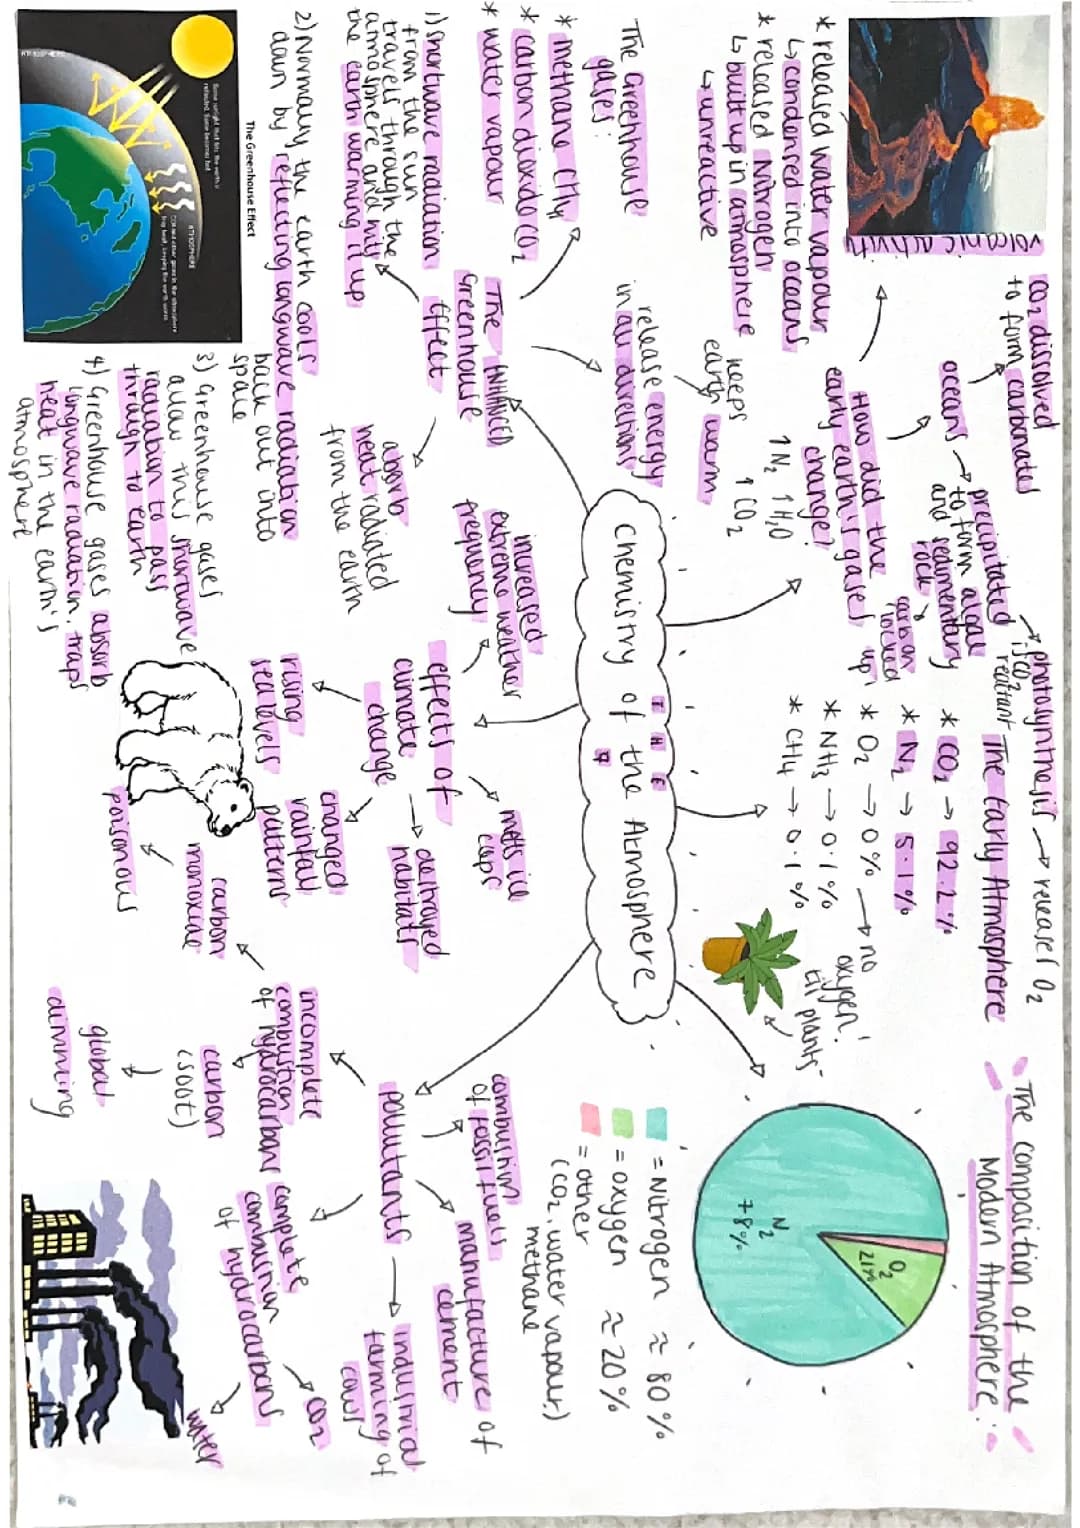 Chemistry of the Atmosphere
THE
volcanic activity
* released water vapour
↳ condensed into oceans
* released Nitrogen
↳ built up in atmosphere
↳ unreactive
CO2 dissolved
to form carbonates
oceans → precipitated
to form algae
and sedimentary
rock →
carbon
locked
up!
How did the
early earth's gases
change?
↑N2 ↑H2O
↑CO2
→ photosynthesis → releases O2
: CO2
reactant
The Early Atmosphere
* CO2 → 92.2%
* N2 → 5.1%
* O2 → 0% → no
oxygen!
til plants
* NH3 → 0.1%
* CH4 → 0.1%
The composition of the
Modern Atmosphere:
N2
78%
O2
21%
= Nitrogen ≈ 80%
= oxygen ≈ 20%
= other
(CO2, water vapour,
methane)
The Greenhouse
gases:
* methane CH4
* carbon dioxide CO2
* water vapour
release energy
in all directions
keeps
earth warm
The ENHANCED
Greenhouse
Effect
absorb
heat radiated
from the earth
1) shortwave radiation
from the sun
travels through the
atmosphere and hits
the earth warming it up
2) Normally the earth cools
down by reflecting longwave radiation
back out into
space
3) Greenhouse gases
allow this shortwave
radiation to pass
through to earth
4) Greenhouse gases absorb
longwave radiation, traps
heat in the earth's
atmosphere
The Greenhouse Effect
Some sunlight that hits the earth is
reflected. Some becomes heat
ATMOSPHERE
CO2 and other gases in the atmosphere
trap heat, keeping the earth warm
effects of
climate
change
increased
extreme weather
frequency
melts ice
caps
destroyed
habitats
changed
rainfall
patterns
rising
sea levels
pollutants
combustion
of fossil fuels
manufacture of
cement
industrial
farming of
cows
complete
combustion
of hydrocarbons
CO2
water
incomplete
combustion
of hydrocarbons
carbon
monoxide
poisonous
carbon
(soot)
global
dimming